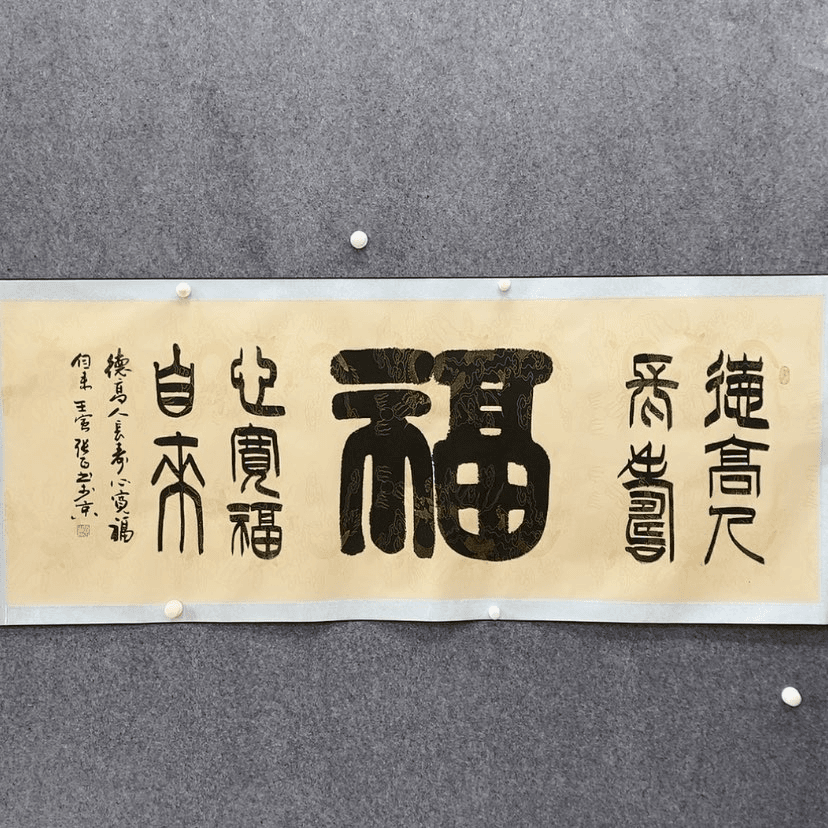 德高人
長壽
福
心寬福
自來
德高人長壽心寬福
自来 壬寅 张 书于京